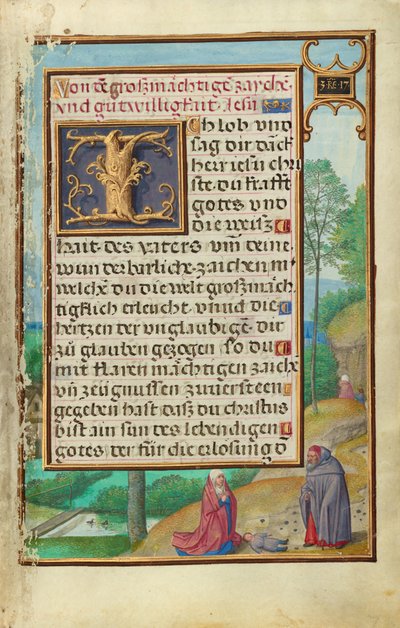 Von dē groszmächtigē zaychē
vnd gutwilligkait Jesu
Ich lob vnd
sag dir danck
herr iesu chri
ste, du krafft
gotes vnd
die weisz
hait des vaters vm̄ deine
wunderbarliche zaichen, in
welchē du die welt groszmäch
tigklich erleucht vnnd die
hertzen der vnglaubigē dir
zů glauben gezogen so du
mit klaren mächtigen zaichē
vn̄ zeugnussen zuuersteen
gegeben hast dasz du christus
bist ain sun des lebendigen
gotes der für die erlosung d
3 RE 17